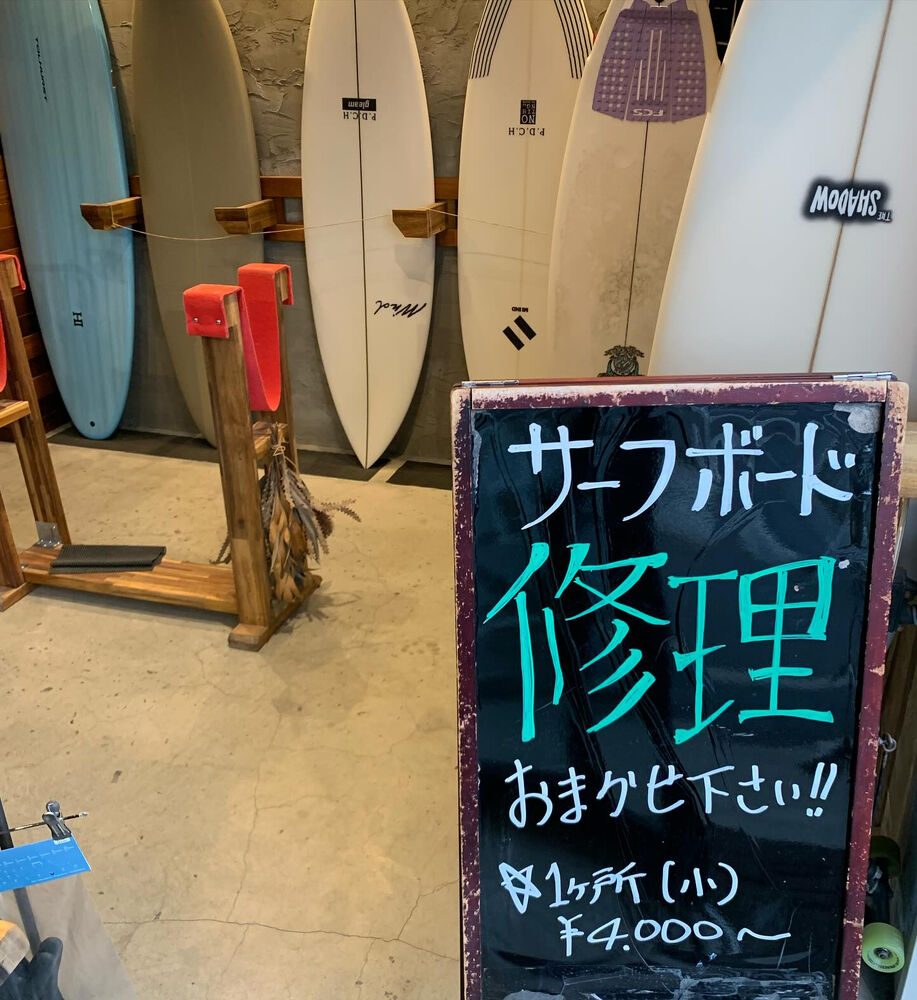 サーフボード
修理
おまかせ下さい!!
☆1ヶ所(小)
¥4.000〜
gleam
P.D.C.H
P.D.C.H
FCS
THE
SHADOW
MIND